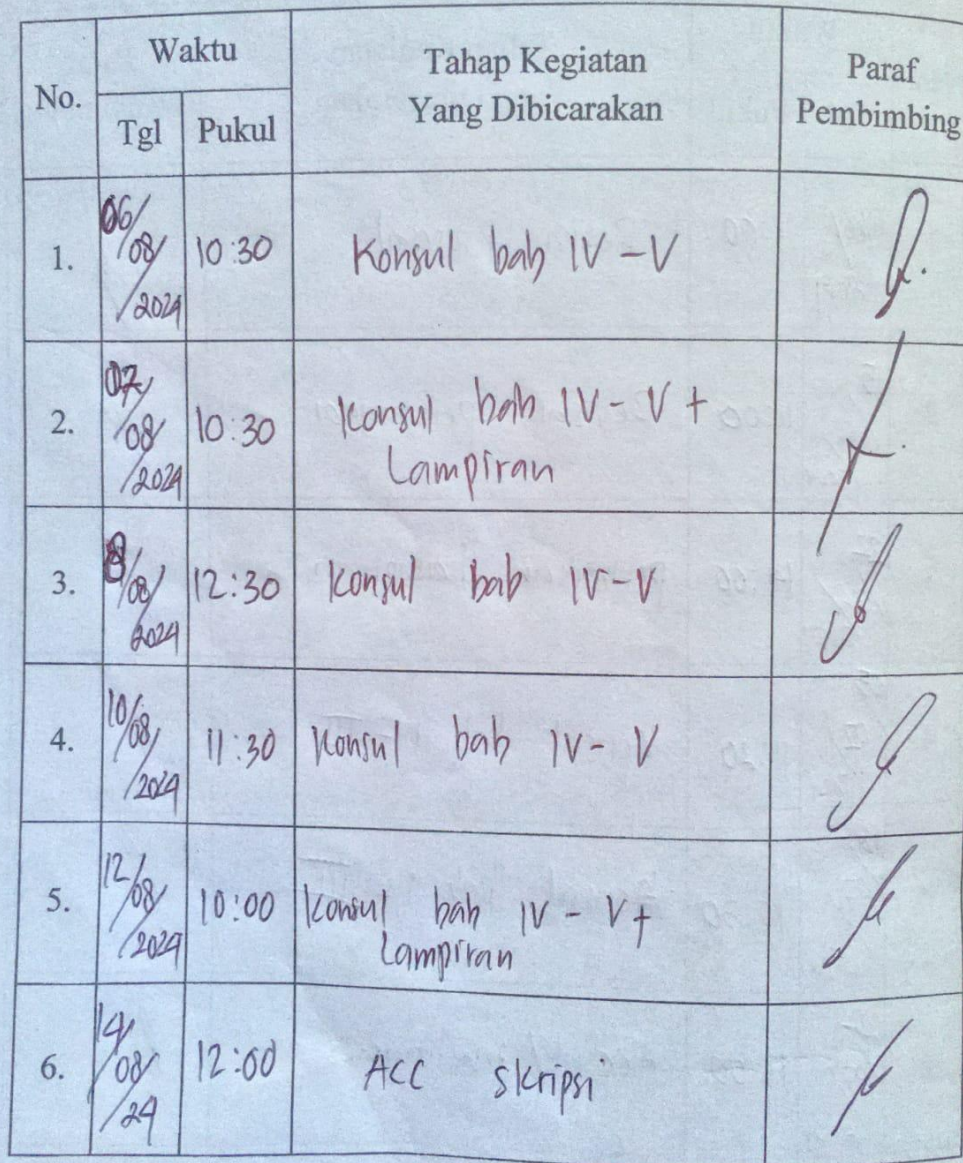 No. Waktu Tahap Kegiatan Paraf
Tgl Pukul Yang Dibicarakan Pembimbing
1. 06/08/2024 10:30 Konsul bab IV - V
2. 07/08/2024 10:30 Konsul bab IV - V +
Lampiran
3. 8/08/2024 12:30 Konsul bab IV - V
4. 10/08/2024 11:30 Konsul bab IV - V
5. 12/08/2024 10:00 Konsul bab IV - V +
Lampiran
6. 14/08/24 12:00 ACC Skripsi